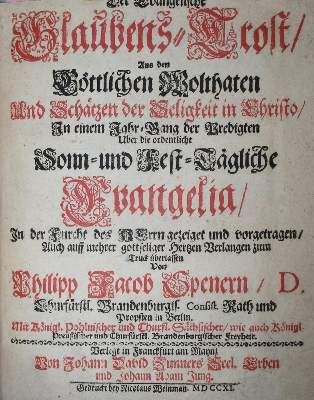 Der Evangelische
Glaubens-Trost/
Aus den
Göttlichen Wolthaten
Und Schätzen der Seligkeit in Christo/
In einem Jahr-Gang der Predigten
Uber die ordentliche
Sonn- und Fest-Tägliche
Evangelia/
In der Furcht des HErrn gezeiget und vorgetragen/
Auch auff mehrer gottseliger Hertzen Verlangen zum
Truck überlassen
Von
Philipp Jacob Spenern/ D.
Churfürstl. Brandenburgis. Consist. Rath und
Propsten in Berlin.
Mit Königl. Pohlnischer und Churfl. Sächsischer/ wie auch Königl.
Preussischer und Churfürstl. Brandenburgischer Freyheit.
Verlegt in Franckfurt am Mayn/
Von Johann David Zunners Seel. Erben
und Johann Adam Jung.
Gedruckt bey Nicolaus Weinman. MDCCXI.